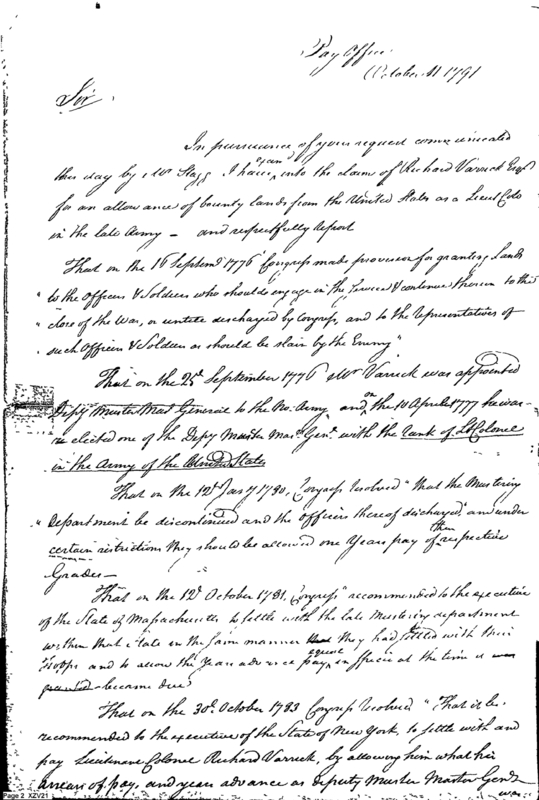 Pay Office
October 11 1791
Sir,
In pursuance of your request communicated
this day by Mr Stagg I have and into the claim of Richard Varick Esqr
for an allowance of bounty lands from the United States as a Lieut Colo
in the late Army — and respectfully report
That on the 16 Septemr 1776 Congress made provision for granting Lands
"to the Officers & Soldiers who should engage in the Service & continue therein to the
"close of the War, or untill discharged by Congress, and to the representatives of
"such Officers & Soldiers as should be slain by the Enemy"
That on the 25th September 1776 Mr Varick was appointed
Depy Muster Mas General to the No. Army, and on the 10 April 1777 he was
re elected one of the Depy Muster Mas. Genl with the rank of Lt Colonel
in the Army of the United States
That on the 12th Jany 1780, Congress resolved "that the Mustering
"Department be discontinued and the Officers thereof discharged," and under
certain ristrictions they should be allowed one Years pay of their respective
Grades —
That on the 12th October 1781, Congress "recommended to the executive
of the State of Massachusetts to settle with the late Mustering department
within that State in the same manner they had settled with their
troops and to allow the Years advance pay, in specie at the time it
became due
That on the 30th October 1783 Congress resolved "That it be
recommended to the executive of the State of New York, to settle with and
pay Lieutenant Colonel Richard Varick, by allowing him what his
arrears of pay, and years advance as deputy Muster Master Genl
was
Page 2 XZV21